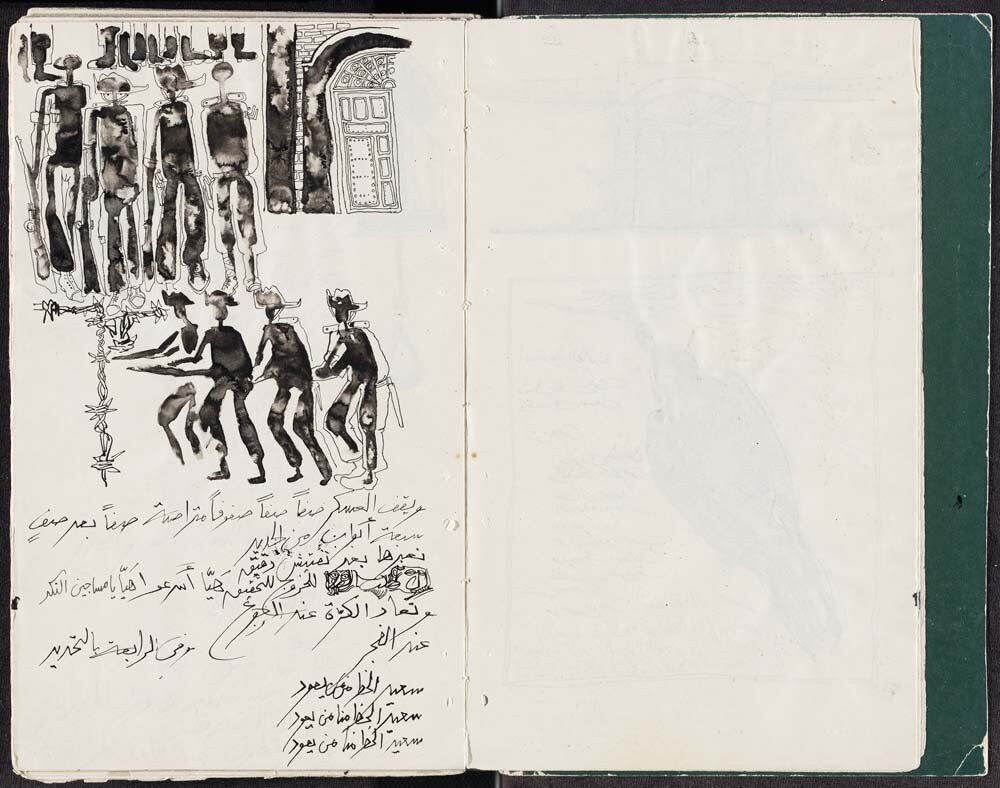 ويقف العسكر صفاً صفاً صفوفاً متراصة صفاً بعد صف
سبعة أبواب من الحديد
نعبرها بعد تفتيش دقيق
للخروج للتحقيق هيّا أسرعوا هيّا يا مساجين النكد
وتعاد الكرّة عند الرجوع
عند الفجر وفي الرابعة بالتحديد
سعيد الحظ من يعود
سعيد الحظ منا من يعود
سعيد الحظ منا من يعود